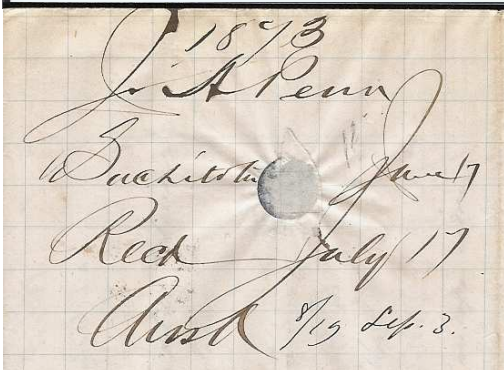 1873
J. A Penn
Suchitoto June 17
Recd July 17
Ansd 8/19 Sep. 3.